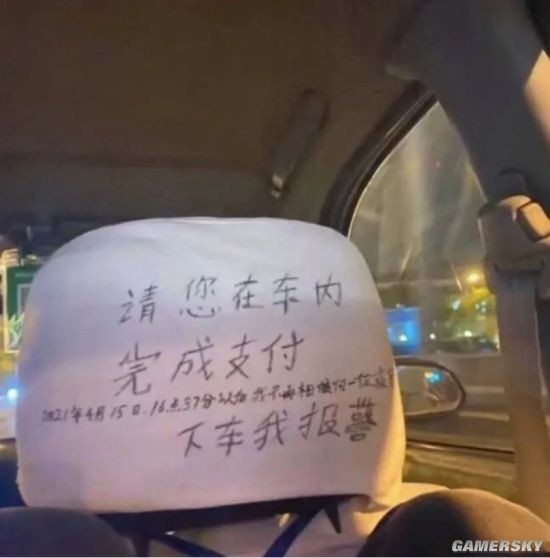 请您在车内
完成支付
2021年4月15日.16点37分以后我不再相信任何一位乘客
下车我报警
GAMERSKY